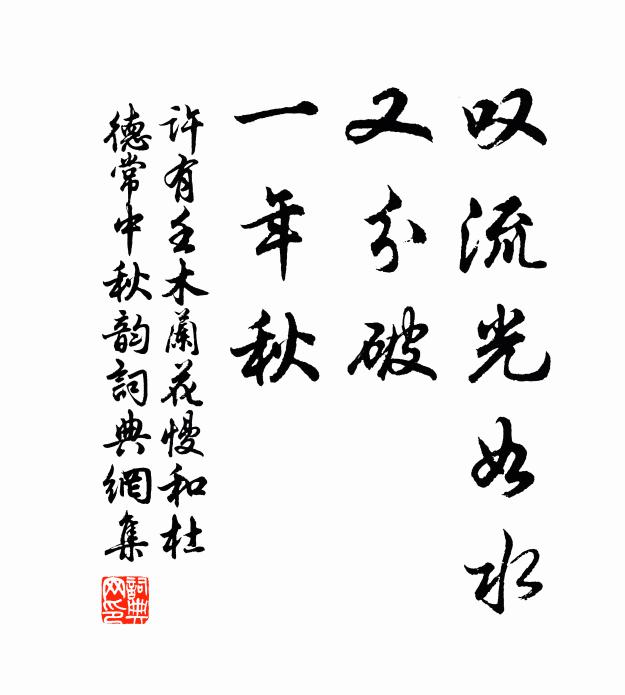 叹流光如水
又分破
一年秋
许有壬木蘭花慢和杜
德常中秋韵詞典網集
詞典网印